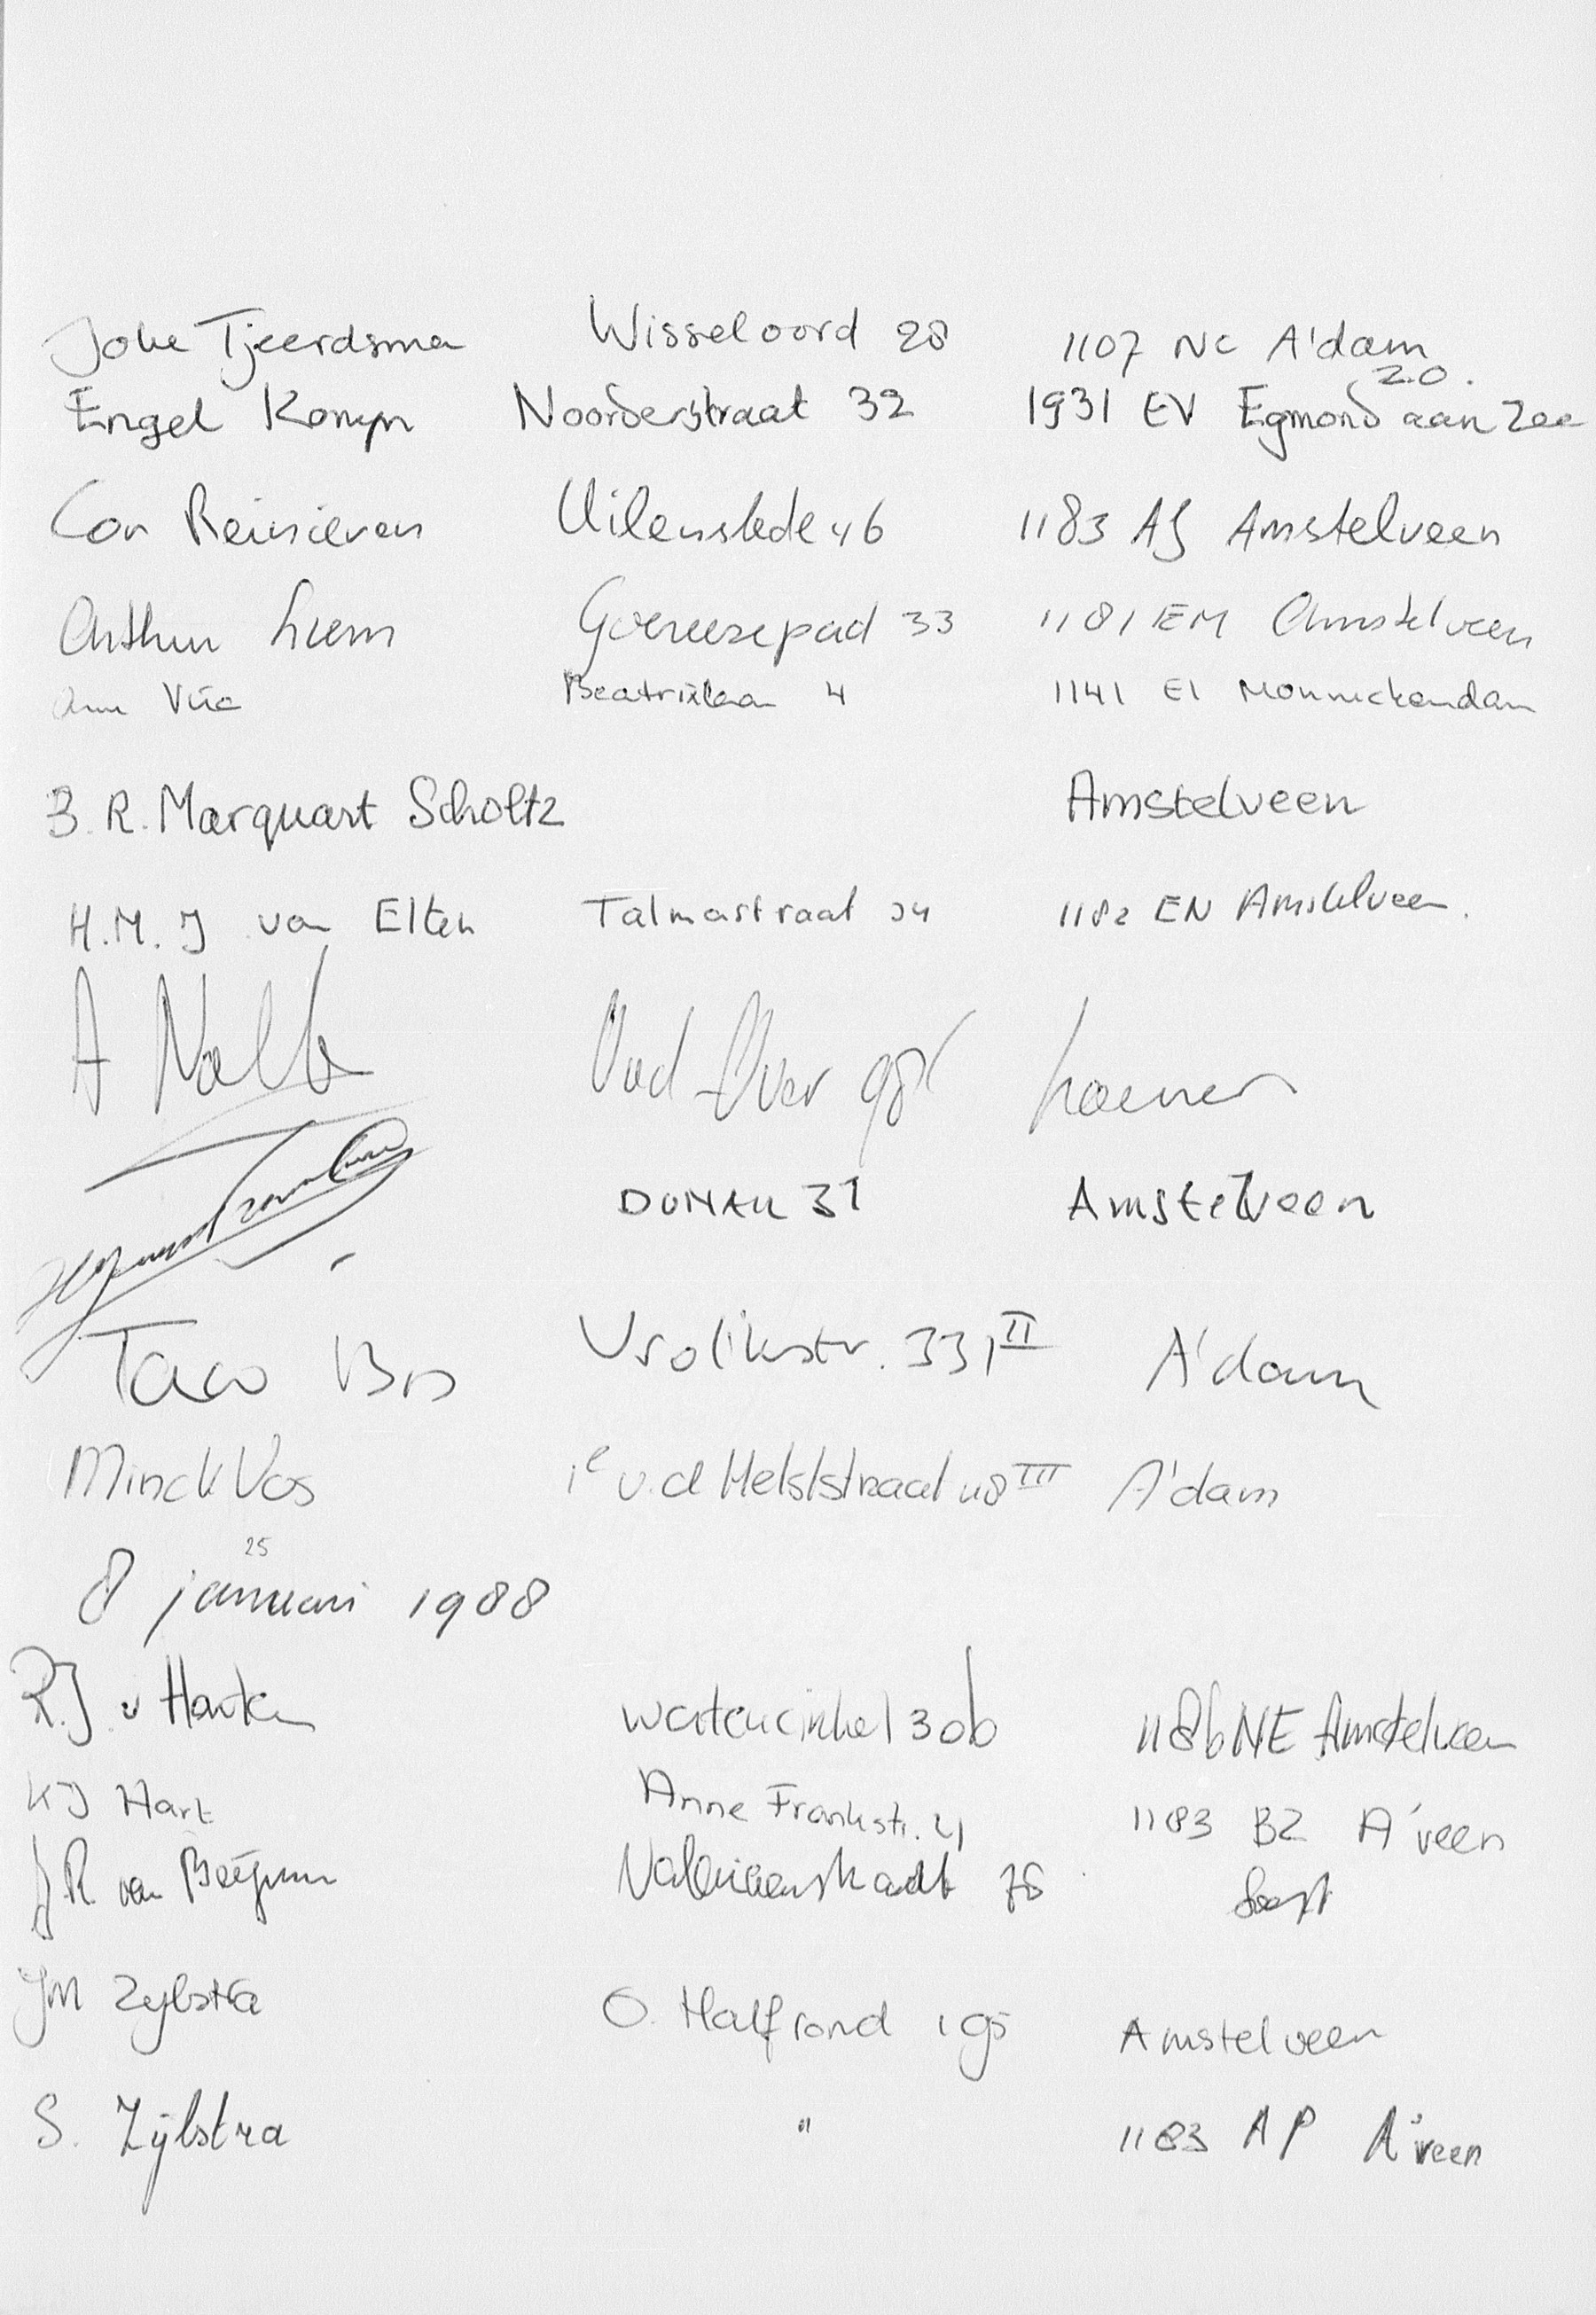 Joke Tjeerdsma Wisseloord 28 1107 NC A'dam
Z.O.
Engel Kompn Noorderstraat 32 1931 EV Egmond aan Zee
Cor Reinieren Uilenstede 46 1183 AJ Amstelveen
Arthur Liem Goereesepad 33 1181 EM Amstelveen
Beatrixlaan 4 1141 EI Monnickendam
B. R. Marquart Scholtz Amstelveen
H.M. J van Elten Talmastraat 34 1182 EN Amstelveen.
A Oud Over 98 Loenen
DONAU 31 Amstelveen
Taco Bos Vrolikstr. 331 II A'dam
Minck Vos 1e v.d Helststraat 48 III A'dam
25
8 januari 1988
R.J. v Harten 30b 1186 NE Amstelveen
KJ Hart Anne Frankstr. 4 1183 BZ A'veen
J R van 76 Soest
JM Zijlstra O. Halfrond 195 Amstelveen
S. Zijlstra " 1183 AP A'veen